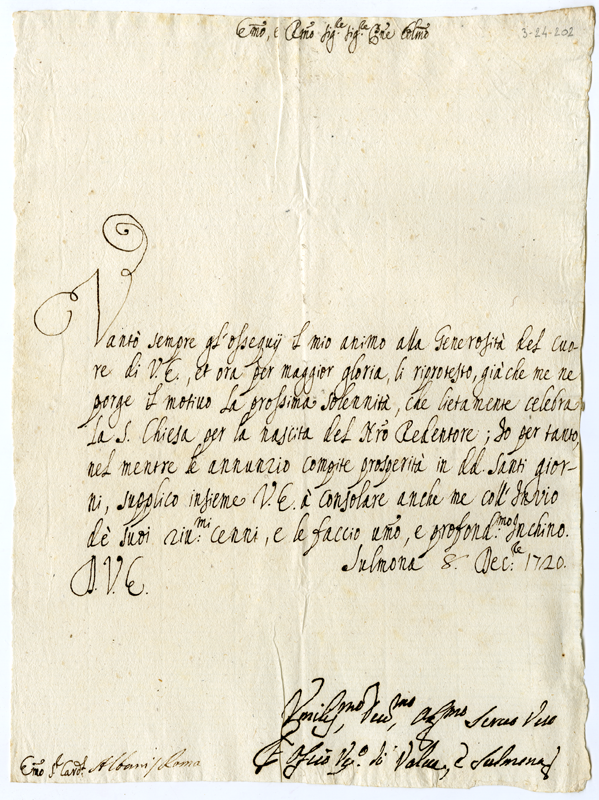 Emo, e Rmo Sig.re Sig.re Pne Colmo
3-24-202
Vantò sempre gl'ossequÿ il mio animo alla Generosità del cuo-
re di V.E., et ora per maggior gloria, li riprotesto, già che me ne
porge il motiuo la prossima solennità, che lietamente celebra
la S. Chiesa per la nascita del Nro Redentore; Io per tanto,
nel mentre le annunzio compite prosperità in dd. Santi gior-
ni, supplico insieme V.E. à consolare anche me coll'Inuio
dè suoi riu.mi cenni, e le faccio umo, e profond.mo Inchino.
D. V. E. Sulmona 8. Dec.bre 1720.
Vmilis.mo, Deu.mo, Seruo Vero
Vo. di Valua, è Sulmona
Emo S.r Card. Albani / Roma